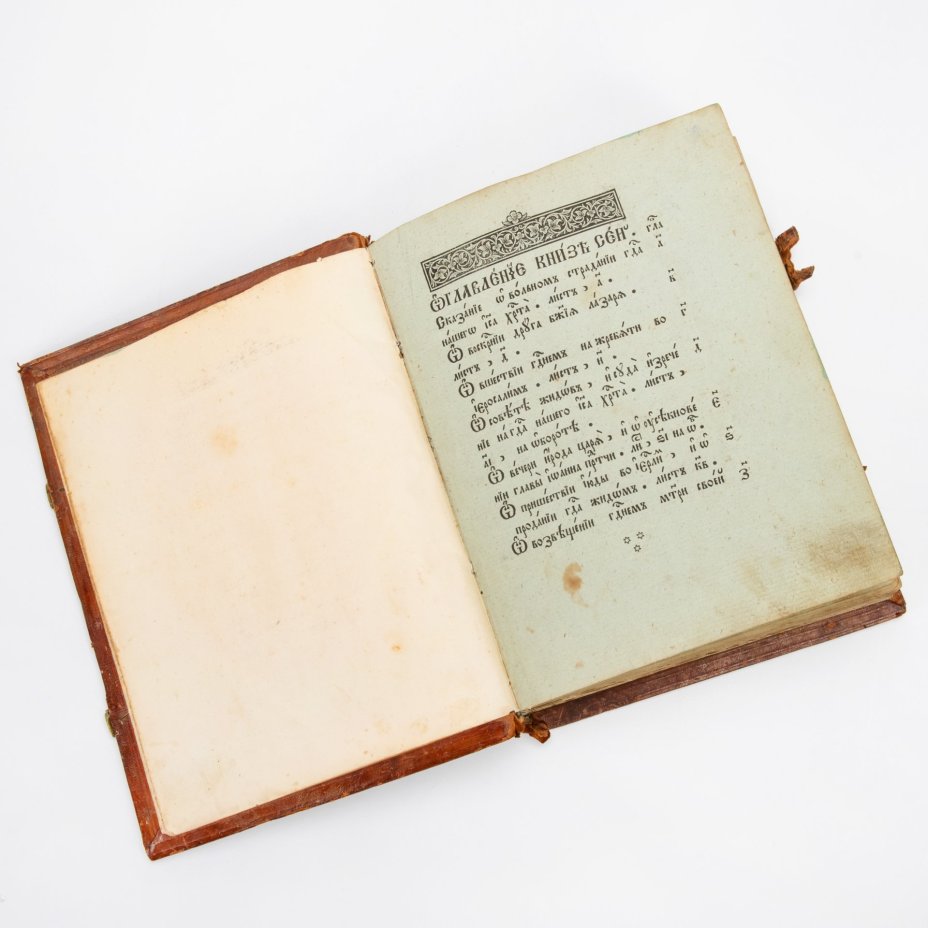 Ѡ҆ГЛАВЛЕ́НЇЕ КНИ́ЗѢ СЕ́Й . гла̑
Сказа́нїе ѡ҆ во́льномъ страда́нїи гдⷭ҇а а҃
на́шегѡ і҆с҃а хрⷭ҇та̀ . ли́стъ , а҃ .
Ѡ҆ воскр҃нїи дрꙋ́га бж҃їѧ ла́зарѧ . в҃
ли́стъ , д҃ .
Ѡ҆ вше́ствїи гдⷭ҇немъ на жребѧ́ти во г҃
і҆ерⷭ҇осали́мъ . ли́стъ , и҃ .
Ѡ҆ совѣ́тѣ жидѡ́въ , и҆ ї҆ꙋ́да и҆зрече́ д҃
нїе на гдⷭ҇а на́шего і҆с҃а хрⷭ҇та̀ . ли́стъ ,
, на ѡ҆боро́тѣ .
Ѡ҆ ве́чери и҆́рода царѧ̀ , и҆ ѡ҆ ᲂу҆сѣкнове́ е҃
нїи главы̀ і҆ѡа́нна прⷣте́чи . ли́ , на ѡ҆б .
Ѡ҆ прише́ствїи і҆ю́ды во і҆ерⷭ҇ли́м , и҆ ѡ҆ ѕ҃
прода́нїи гдⷭ҇а жидѡ́мъ . ли́стъ к҃в .
Ѡ҆ возвѣще́нїи гдⷭ҇немъ мт҃ри свое́й з҃